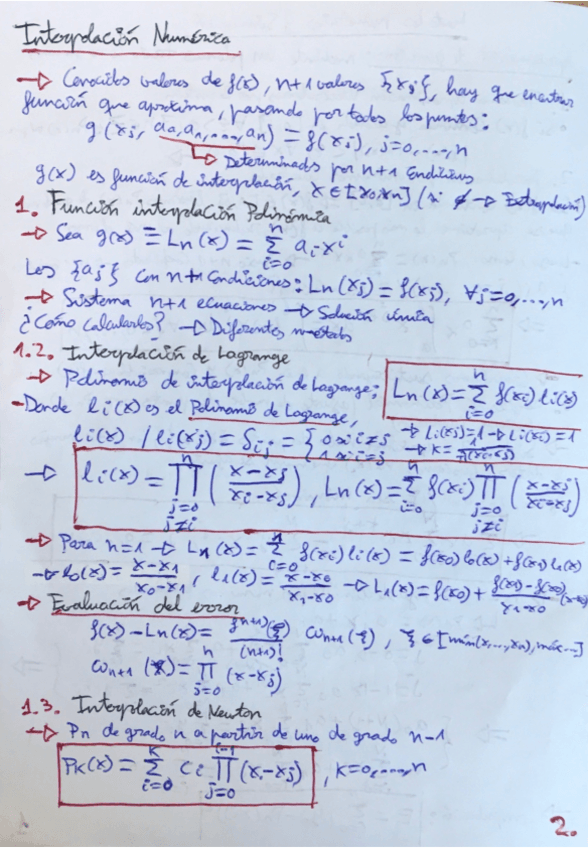 Interpolación Numérica
→ Conocidos valores de f(x), n+1 valores {xj}, hay que encontrar
función que aproxima, pasando por todos los puntos:
g(xj, a0, a1, ..., an) = f(xj), j=0,...,n
→ Determinados por n+1 condiciones
g(x) es función de interpolación, x ∈ [x0, xn] (si ∉ → Extrapolación)
1. Función interpolación Polinómica
→ Sea g(x) ≡ Ln(x) = Σ_{i=0}^{n} ai x^i
Los {aj} con n+1 condiciones: Ln(xj) = f(xj), ∀j=0,...,n
→ Sistema n+1 ecuaciones → Solución única
¿Cómo calcularlos? → Diferentes métodos
1.2. Interpolación de Lagrange
→ Polinomio de interpolación de Lagrange: Ln(x) = Σ_{i=0}^{n} f(xi) li(x)
- Donde li(x) es el Polinomio de Lagrange,
li(x) / li(xj) = δij = { 0 si i≠j
1 si i=j
→ li(x) = ∏_{j=0, j≠i}^{n} ((x-xj)/(xi-xj)), Ln(x) = Σ_{i=0}^{n} f(xi) ∏_{j=0, j≠i}^{n} ((x-xj)/(xi-xj))
→ Para n=1 → Ln(x) = Σ_{i=0}^{1} f(xi) li(x) = f(x0) l0(x) + f(x1) l1(x)
→ l0(x) = (x-x1)/(x0-x1), l1(x) = (x-x0)/(x1-x0) → L1(x) = f(x0) + (f(x1)-f(x0))/(x1-x0) (x-x0)
→ Evaluación del error
f(x) - Ln(x) = f^{n+1)}(ξ)/(n+1)! ωn+1(ξ), ξ ∈ [min(x,...,xn), máx...]
ωn+1(x) = ∏_{j=0}^{n} (x-xj)
1.3. Interpolación de Newton
→ Pn de grado n a partir de uno de grado n-1
Pk(x) = Σ_{i=0}^{k} ci ∏_{j=0}^{i-1} (x-xj), k=0,...,n
2.